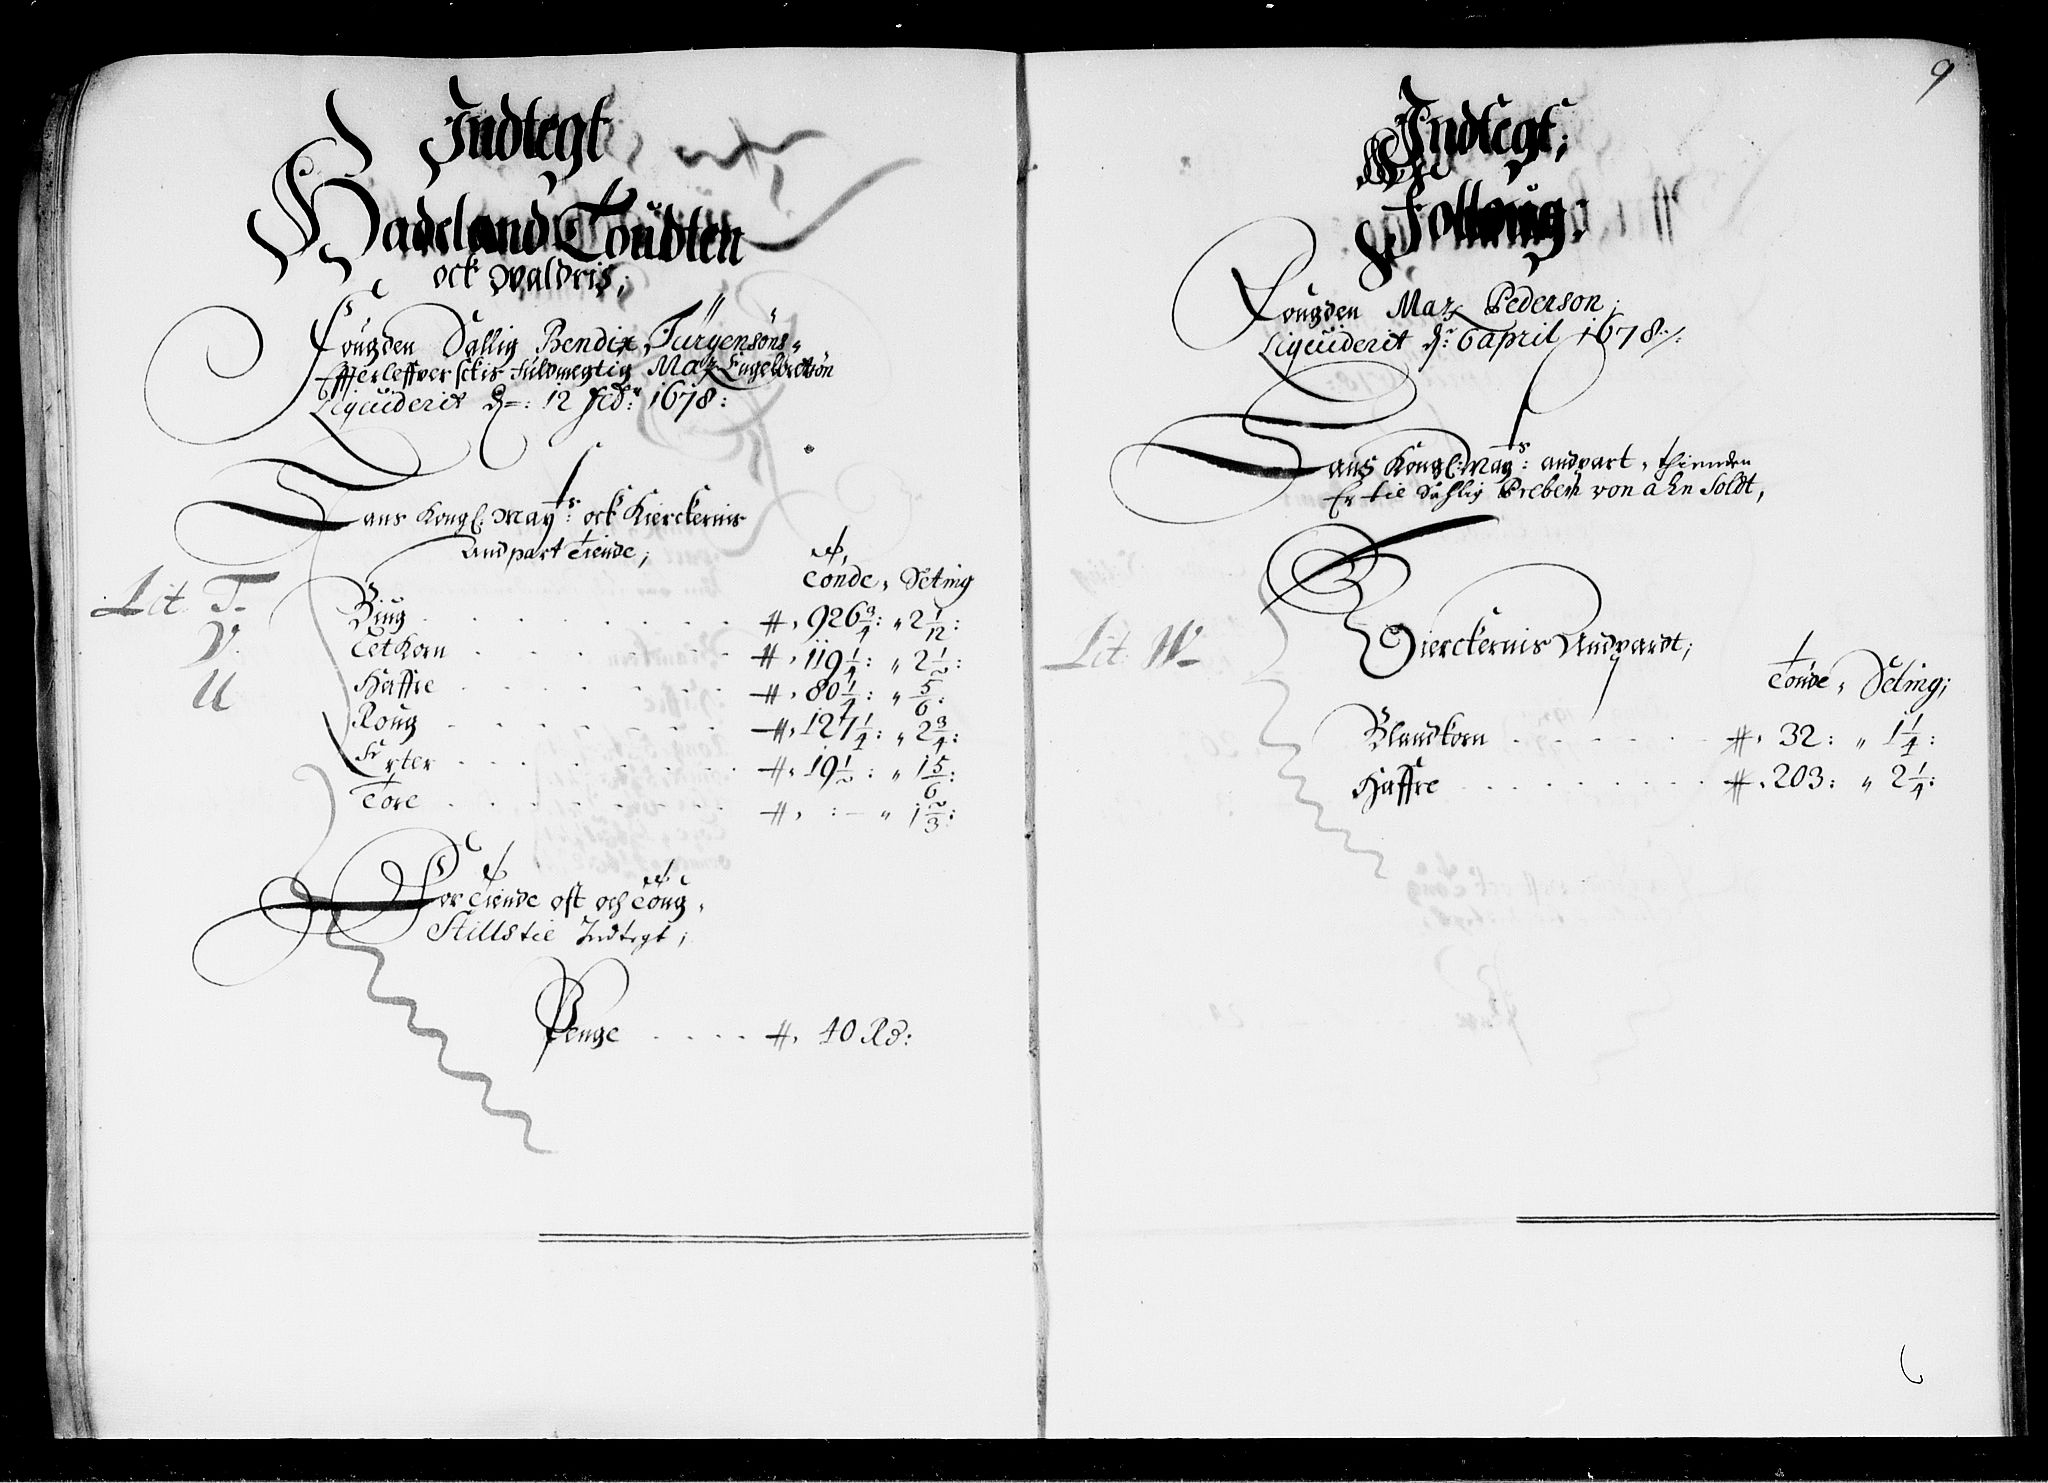 Indtegt
Hadeland Toudten
ock Waldris;
Fougden Sallig Bendix Jürgensöns
Effterleffverskis Fuldmegtig Maz Engelbretsön
Liquiderit dn: 12 Feb: 1678:
Hans Kongl: Mayts: ock Kierckernis
Andpart Tiende;
Tönde, Seting
Lit. T. Biug . . . # , 926 3/4: " 2 1/12:
V. Tetkorn . . . # , 119 1/4: " 2 1/2:
U Haffre . . . # , 80 1/4: " 5/6:
Roug . . . # , 127 1/4: " 2 3/4:
Erter . . . # , 19 1/2: " 1 5/6:
Tore . . . # , : — " 1 2/3:
For Tiende ost och Toug,
Stillstie Indtegt;
Penge . . . . # , 40 Rd:
9
Indtegt;
Folloug:
Fougden Maz Pederson;
Liquiderit dn: 6 april 1678:
Hans Kongl: Mays: andpart, thienden
Er til Sahlig Preben von ahn Soldt,
Lit. W Kierckernis Andpardt;
Tönde, Seting;
Blandkorn . . . # , 32: " 1 1/4:
Haffre . . . # , 203: " 2 1/4: